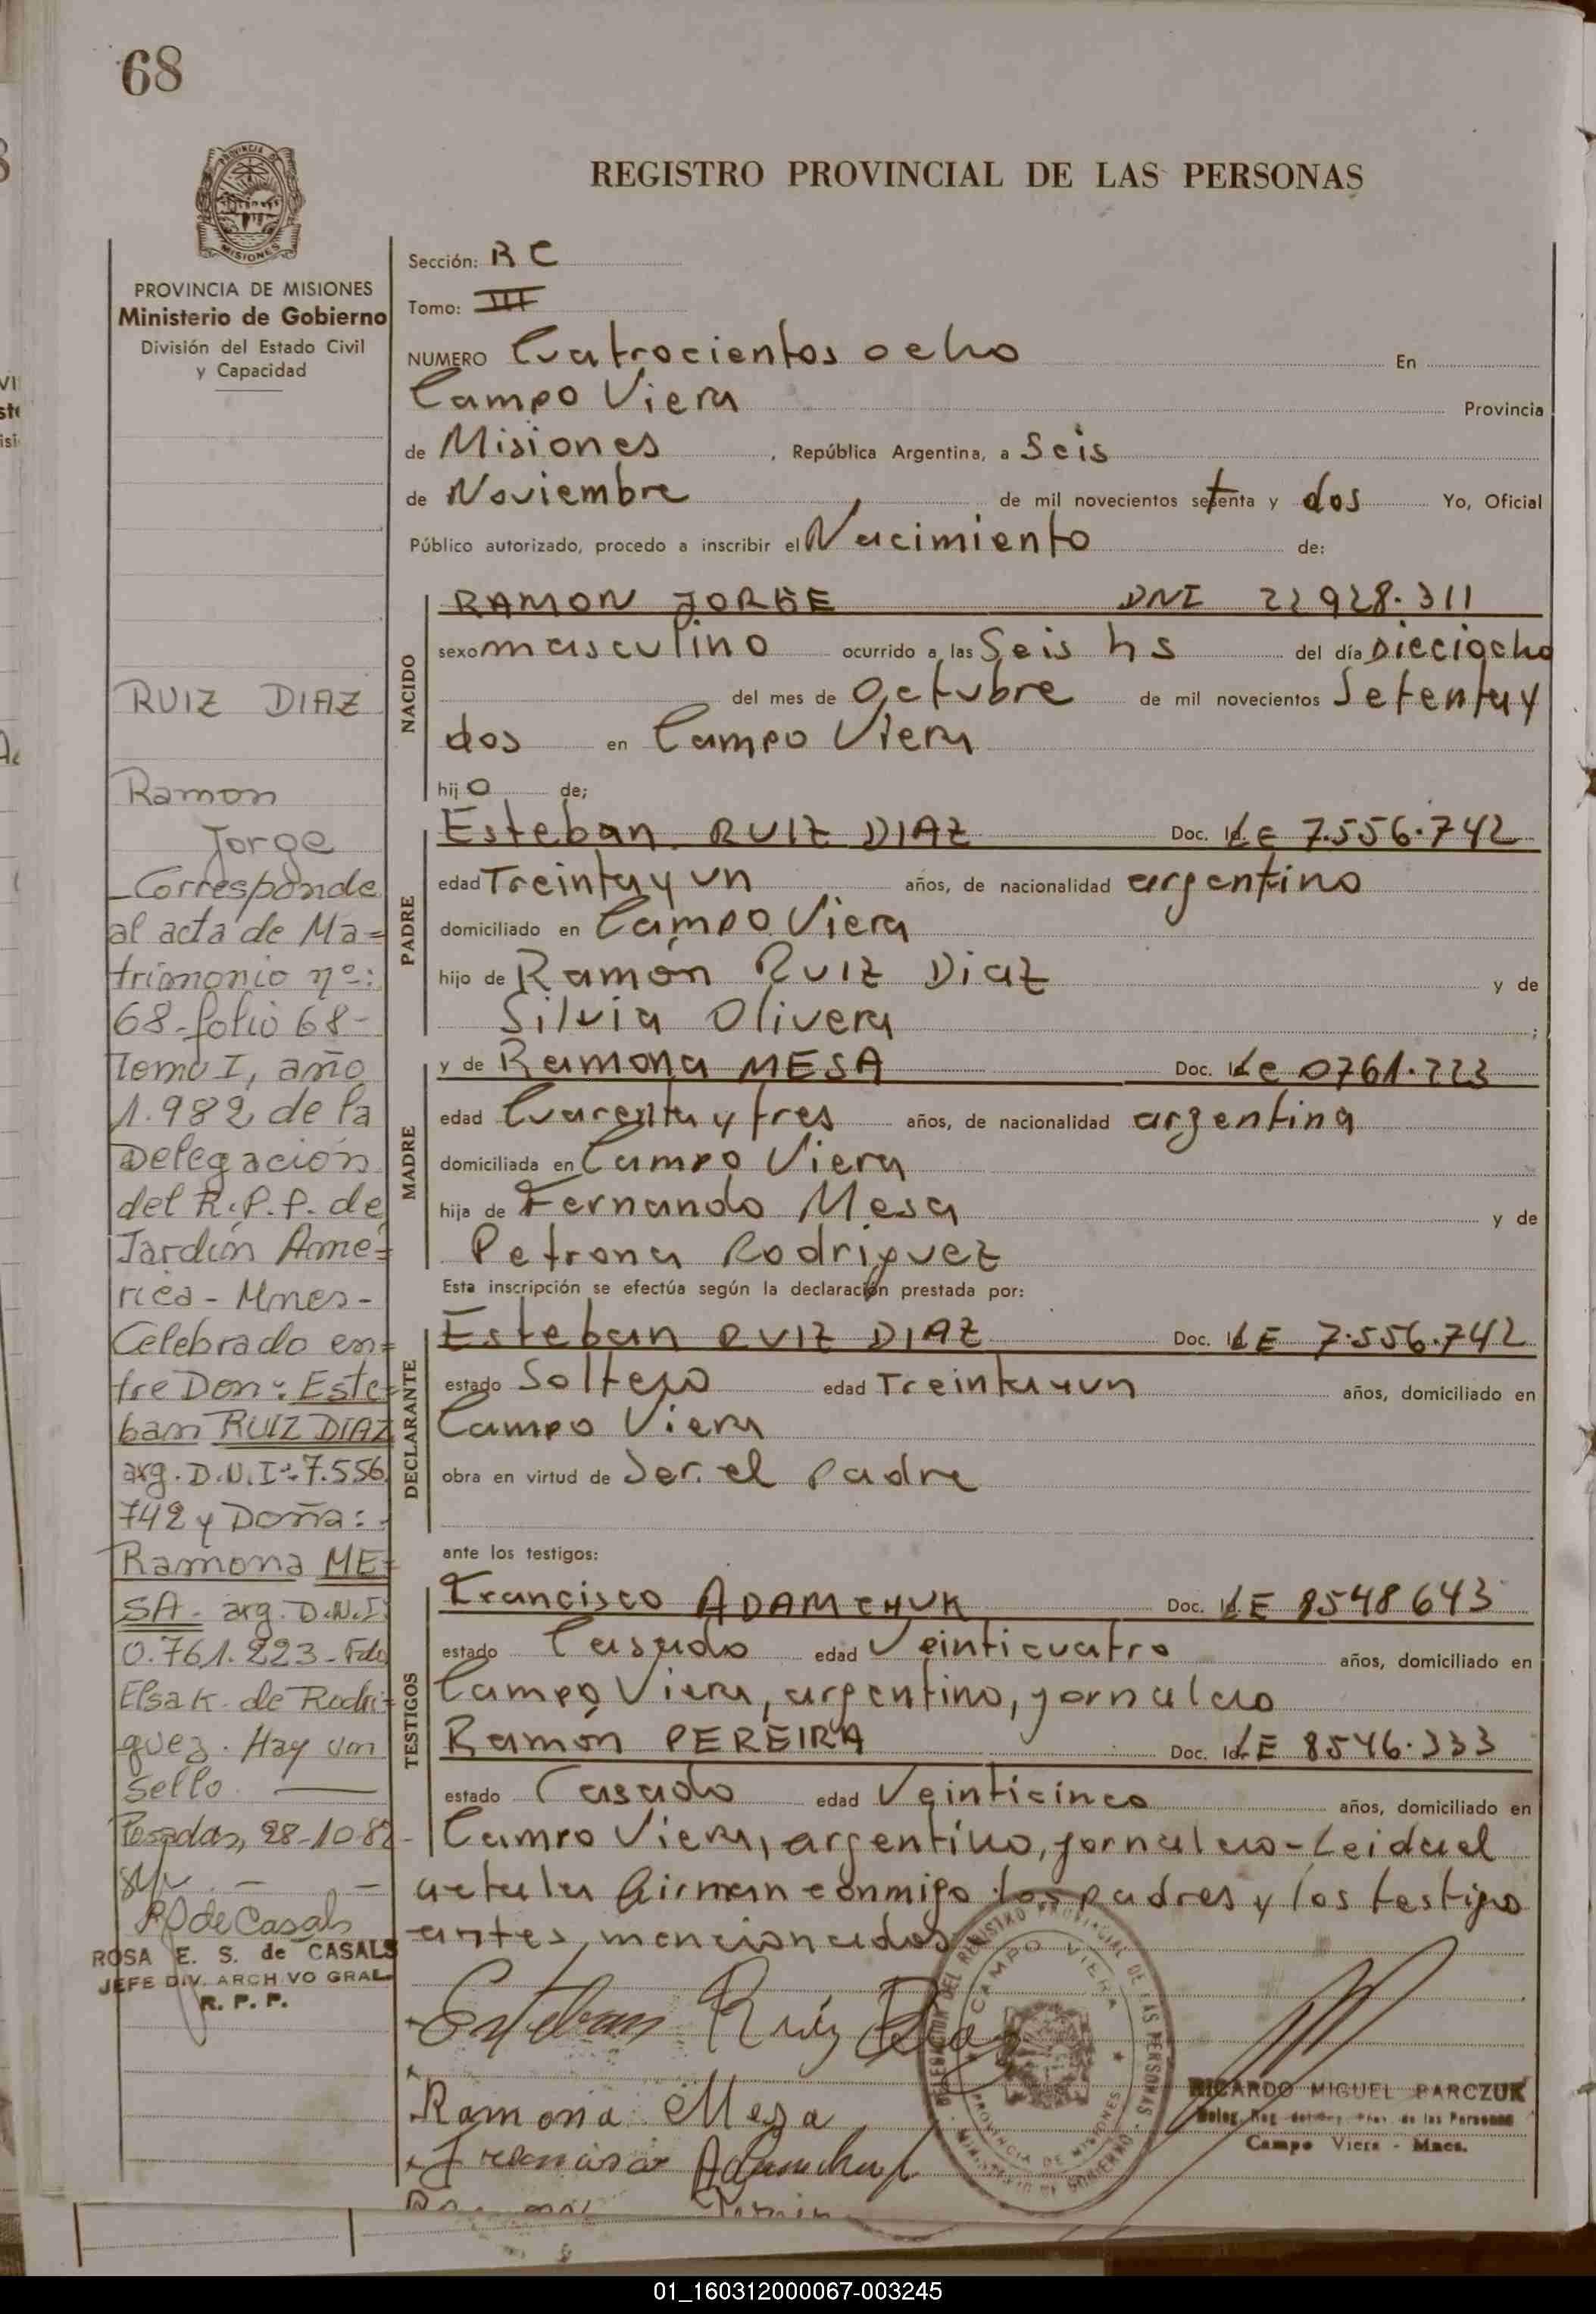 68
REGISTRO PROVINCIAL DE LAS PERSONAS
PROVINCIA DE MISIONES
Ministerio de Gobierno
División del Estado Civil
y Capacidad
RUIZ DIAZ
Ramon
Jorge
-Corresponde
al acta de Ma=
trimonio nº:
68-folio 68-
Tomo I, año
1.982 de la
Delegación
del R.P.P. de
Jardín Amé=
rica - Mnes-
Celebrado en=
tre Don: Este-
ban RUIZ DIAZ
arg. D.N.I: 7.556
742 y Doña:
Ramona ME-
SA- arg. D.N.I:
0.761.223-Fdo
Elsa K. de Rodri-
guez. Hay un
sello
Posadas, 28-10-82-
R S de Casals
ROSA E. S. de CASALS
JEFE DIV. ARCHIVO GRAL.
R. P. P.
Sección: RC
Tomo: III
NUMERO Cuatrocientos ocho En
Campo Viera Provincia
de Misiones, República Argentina, a Seis
de Noviembre de mil novecientos setenta y dos Yo, Oficial
Público autorizado, procedo a inscribir el Nacimiento de:
NACIDO
RAMON JORGE DNI 22 928.311
sexo masculino ocurrido a las Seis hs del día Dieciocho
del mes de Octubre de mil novecientos Setenta y
dos en Campo Viera
hijo de;
PADRE
Esteban RUIZ DIAZ Doc. Id. LE 7.556.742
edad Treinta y un años, de nacionalidad argentino
domiciliado en Campo Viera
hijo de Ramón Ruiz Diaz y de
Silvia Olivera ;
MADRE
y de Ramona MESA Doc. Id. LC 0761.223
edad Cuarenta y tres años, de nacionalidad argentina
domiciliada en Campo Viera
hija de Fernando Mesa y de
Petrona Rodriguez
Esta inscripción se efectúa según la declaración prestada por:
DECLARANTE
Esteban RUIZ DIAZ Doc. Id. LE 7.556.742
estado Soltero edad Treinta y un años, domiciliado en
Campo Viera
obra en virtud de Ser el padre
ante los testigos:
TESTIGOS
Francisco ADAMCHUK Doc. Id. LE 8548643
estado Casado edad Veinticuatro años, domiciliado en
Campo Viera, argentino, jornalero
Ramón PEREIRA Doc. Id. LE 8546.333
estado Casado edad Veinticinco años, domiciliado en
Campo Viera, argentino, jornalero-Leida el
acta la firman conmigo los padres y los testigo
antes mencionados
Esteban Ruiz Diaz
Ramona Mesa
Francisco Adamchuk
DELEGACION DEL REGISTRO PROVINCIAL DE LAS PERSONAS
CAMPO VIERA
PROVINCIA DE MISIONES
MINISTERIO DE GOBIERNO
RICARDO MIGUEL PARCZUK
Deleg. Reg. de las Personas
Campo Viera - Mnes.
01_160312000067-003245